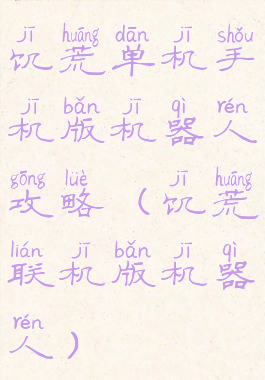 jī huāng dān jī shǒu
饥荒单机手
jī bǎn jī qì rén
机版机器人
gōng lüè jī huāng
攻略(饥荒
lián jī bǎn jī qì
联机版机器
rén
人)